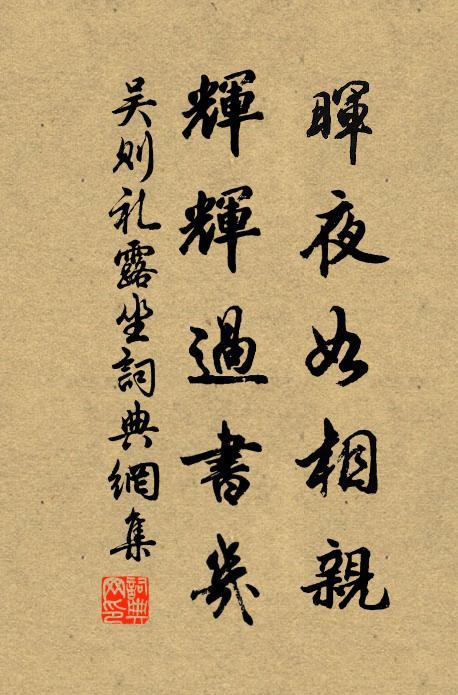 暉夜如相親
輝輝過書幾
吴则礼露坐詞典網集
詞典网印